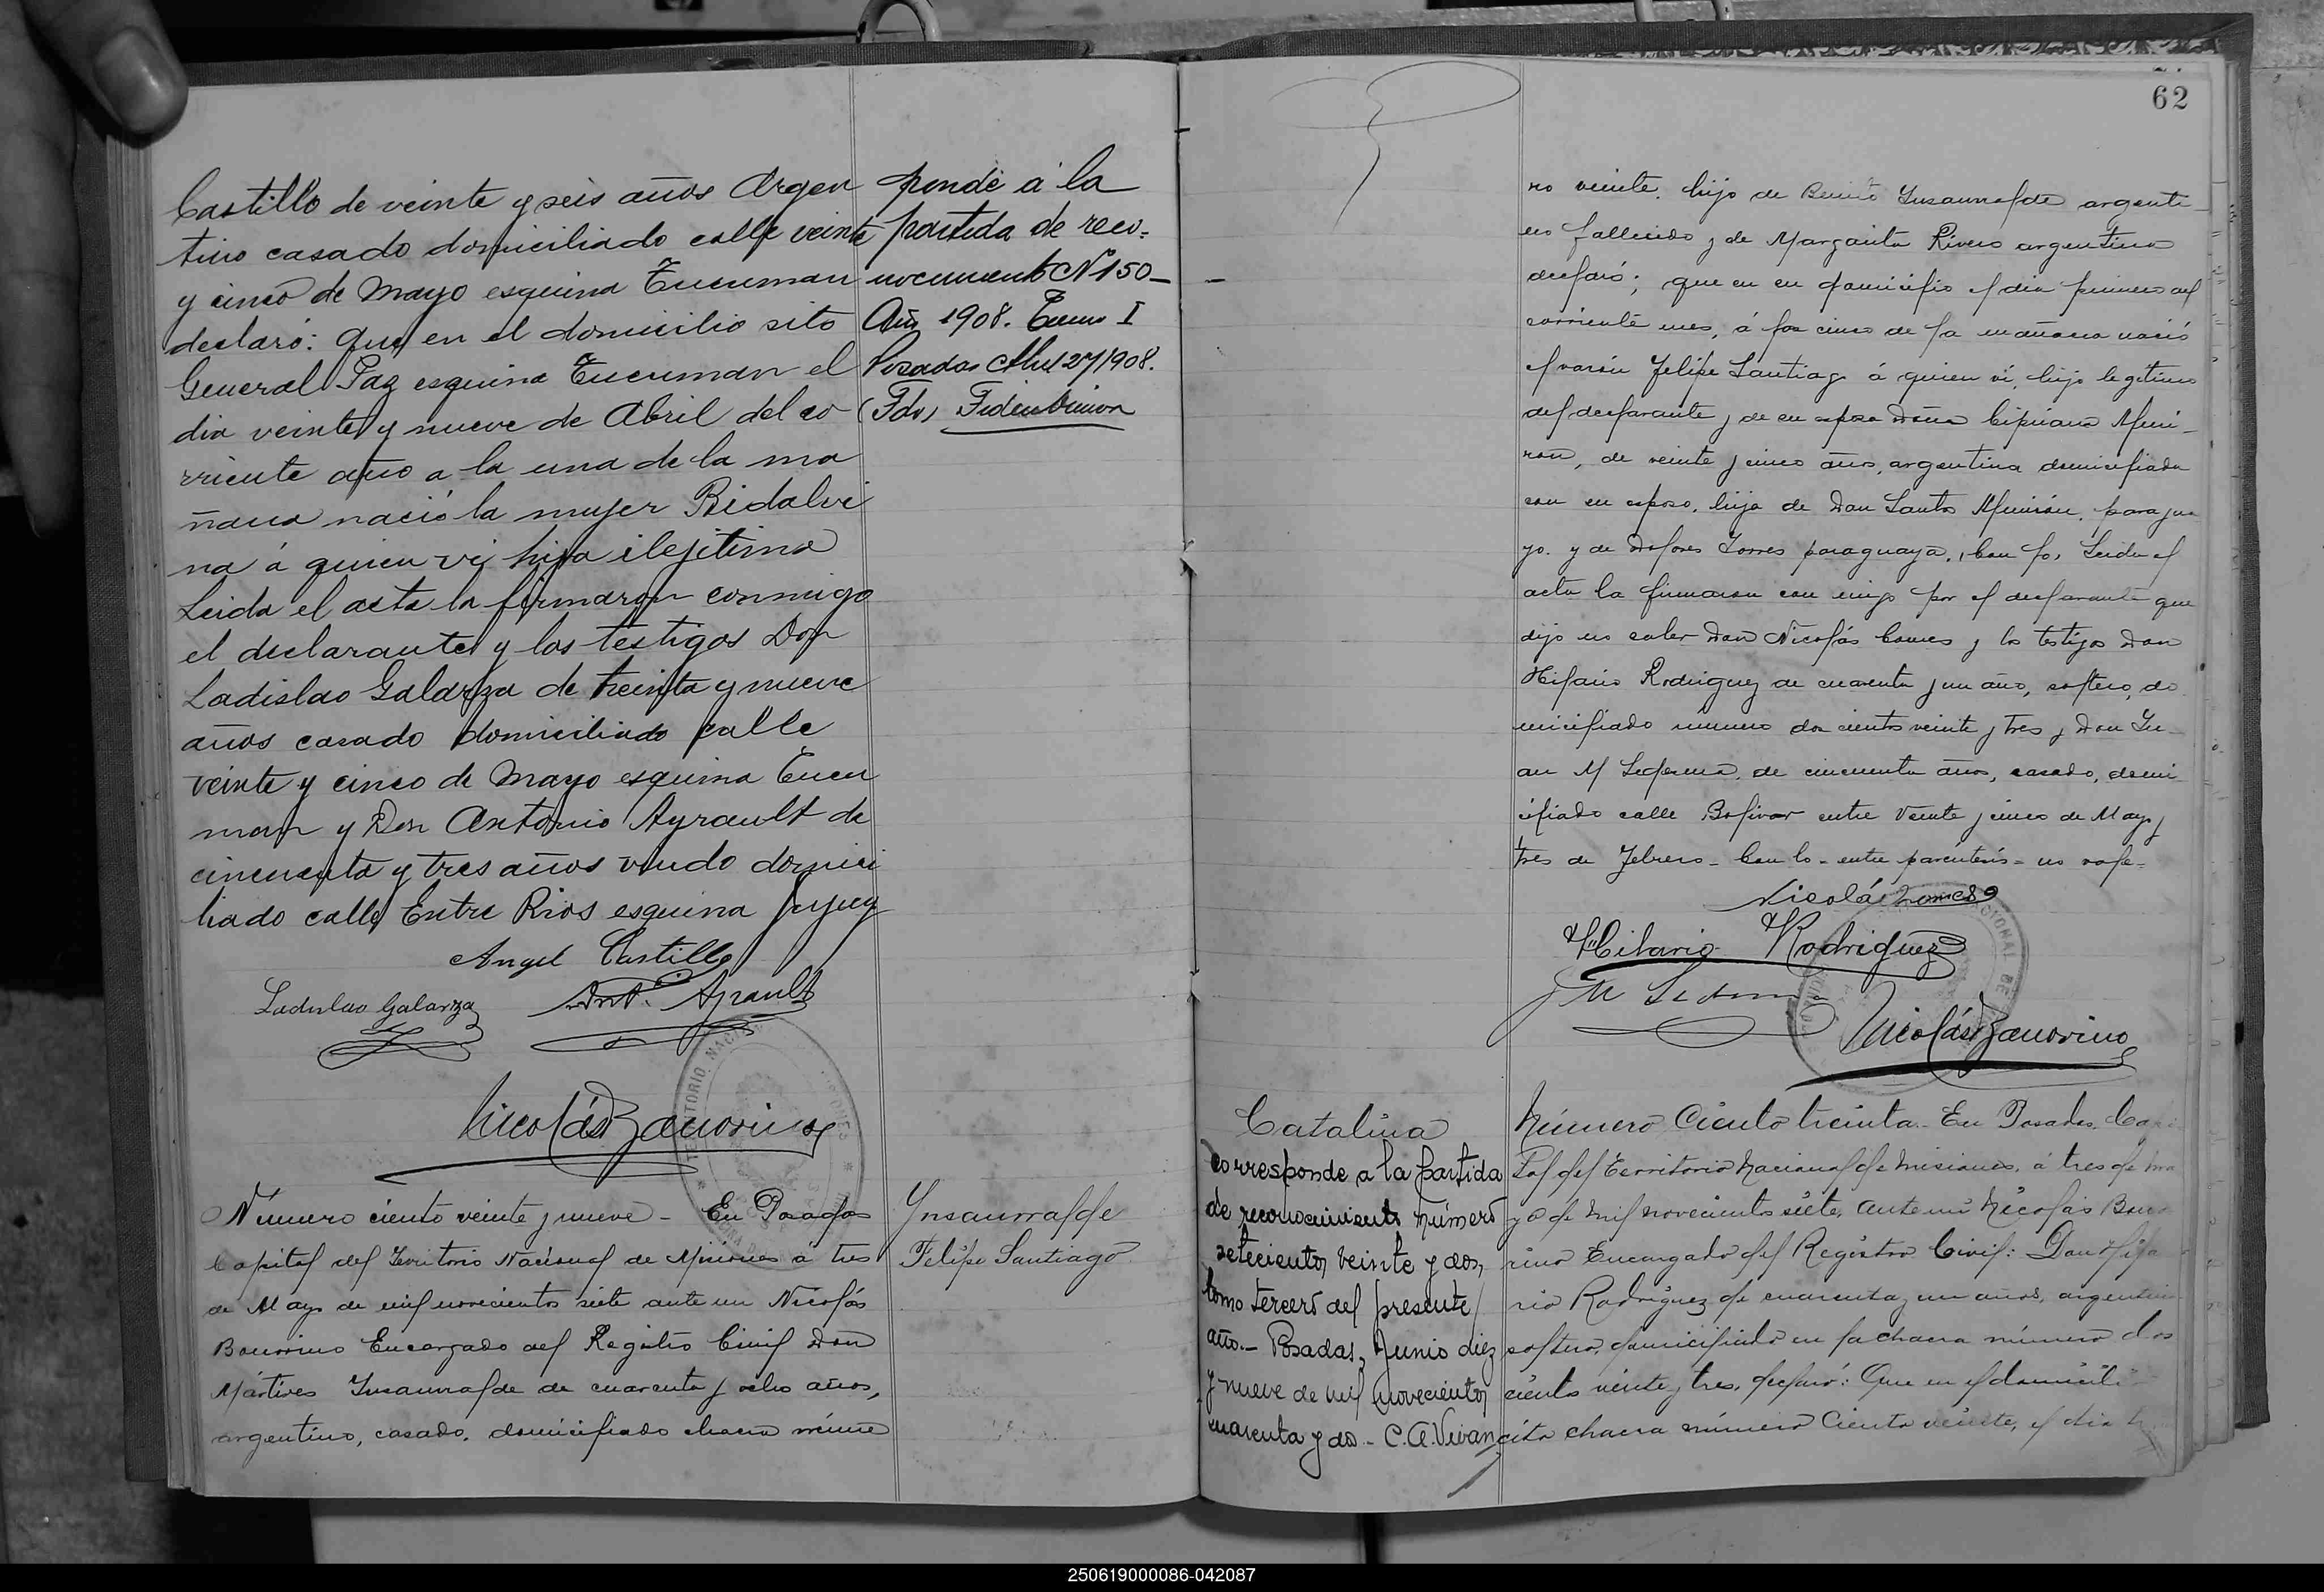 Castillo de veinte y seis años Argen
tino casado domiciliado calle veinte
y cinco de Mayo esquina Tucuman
declaró: que en el domicilio sito
General Paz esquina Tucuman el
dia veinte y nueve de Abril del co
rriente año a la una de la ma
ñana nació la mujer Ridalvi
na á quien vi hija ilejitima
Leida el acta la firmaron conmigo
el declarante y los testigos Don
Ladislao Galarza de treinta y nueve
años casado domiciliado calle
veinte y cinco de Mayo esquina Tucu
man y Don Antonio Ayrault de
cincuenta y tres años viudo domici
liado calle Entre Rios esquina Jujuy
Angel Castillo
Ladislao Galarza Ant. Ayrault
Nicolás Bauorino
ponde á la
partida de reco-
nocimiento Nº 150-
Año 1908. Tomo I
Posadas Abril 27/908.
(Fdo)
Número ciento veinte y nueve - En Posadas
Capital del Territorio Nacional de Misiones á tres
de Mayo de mil novecientos siete ante mi Nicolás
Bauorino Encargado del Registro Civil Don
Mártires Insaurralde de cuarenta y ocho años,
argentino, casado, domiciliado chacra núme
Ynsaurralde
Felipe Santiago
62
ro veinte, hijo de Benito Insaurralde argenti-
no fallecido y de Margarita Rivero argentina
declaró; que en su domicilio el dia primero del
corriente mes, á las cinco de la mañana nació
el varón Felipe Santiago á quien vi, hijo legitimo
del declarante y de su esposa Doña Cipriana Mini-
ron, de veinte y cinco años, argentina domiciliada
con su esposo, hija de Don Santos Minirón, paragua
yo. y de Dolores Torres paraguaya. (con lo) Leida el
acta la firmaron con migo por el declarante que
dijo no saber Don Nicolás Gomes y los testigos Don
Hilario Rodriguez de cuarenta y un año, soltero, do
miciliado numero dos cientos veinte y tres y Don Ju-
an M Ledesma, de cincuenta años, casado, domi
ciliado calle Bolivar entre Veinte y cinco de Mayo y
tres de Febrero - Con lo - entre paréntesis - no vale-
Nicolás Gomes
Hilario Rodriguez
J M Ledesma
Nicolás Bauorino
Catalina
corresponde a la partida
de reconocimiento número
setecientos veinte y dos,
tomo tercero del presente
año.- Posadas, Junio diez
y nueve de mil novecientos
cuarenta y dos - C.A. Vivan
Número Ciento treinta - En Posadas, Capi
tal del Territorio Nacional de Misiones, á tres de Ma
yo de mil novecientos siete, ante mi Nicolás Bauo
rino Encargado del Registro Civil: Don Hila
rio Rodriguez de cuarenta y un años, argentino
soltero, domiciliado en la chacra número dos
ciento veinte y tres, declaró: Que en el domicili
cito chacra número Ciento veinte, el dia
250619000086-042087